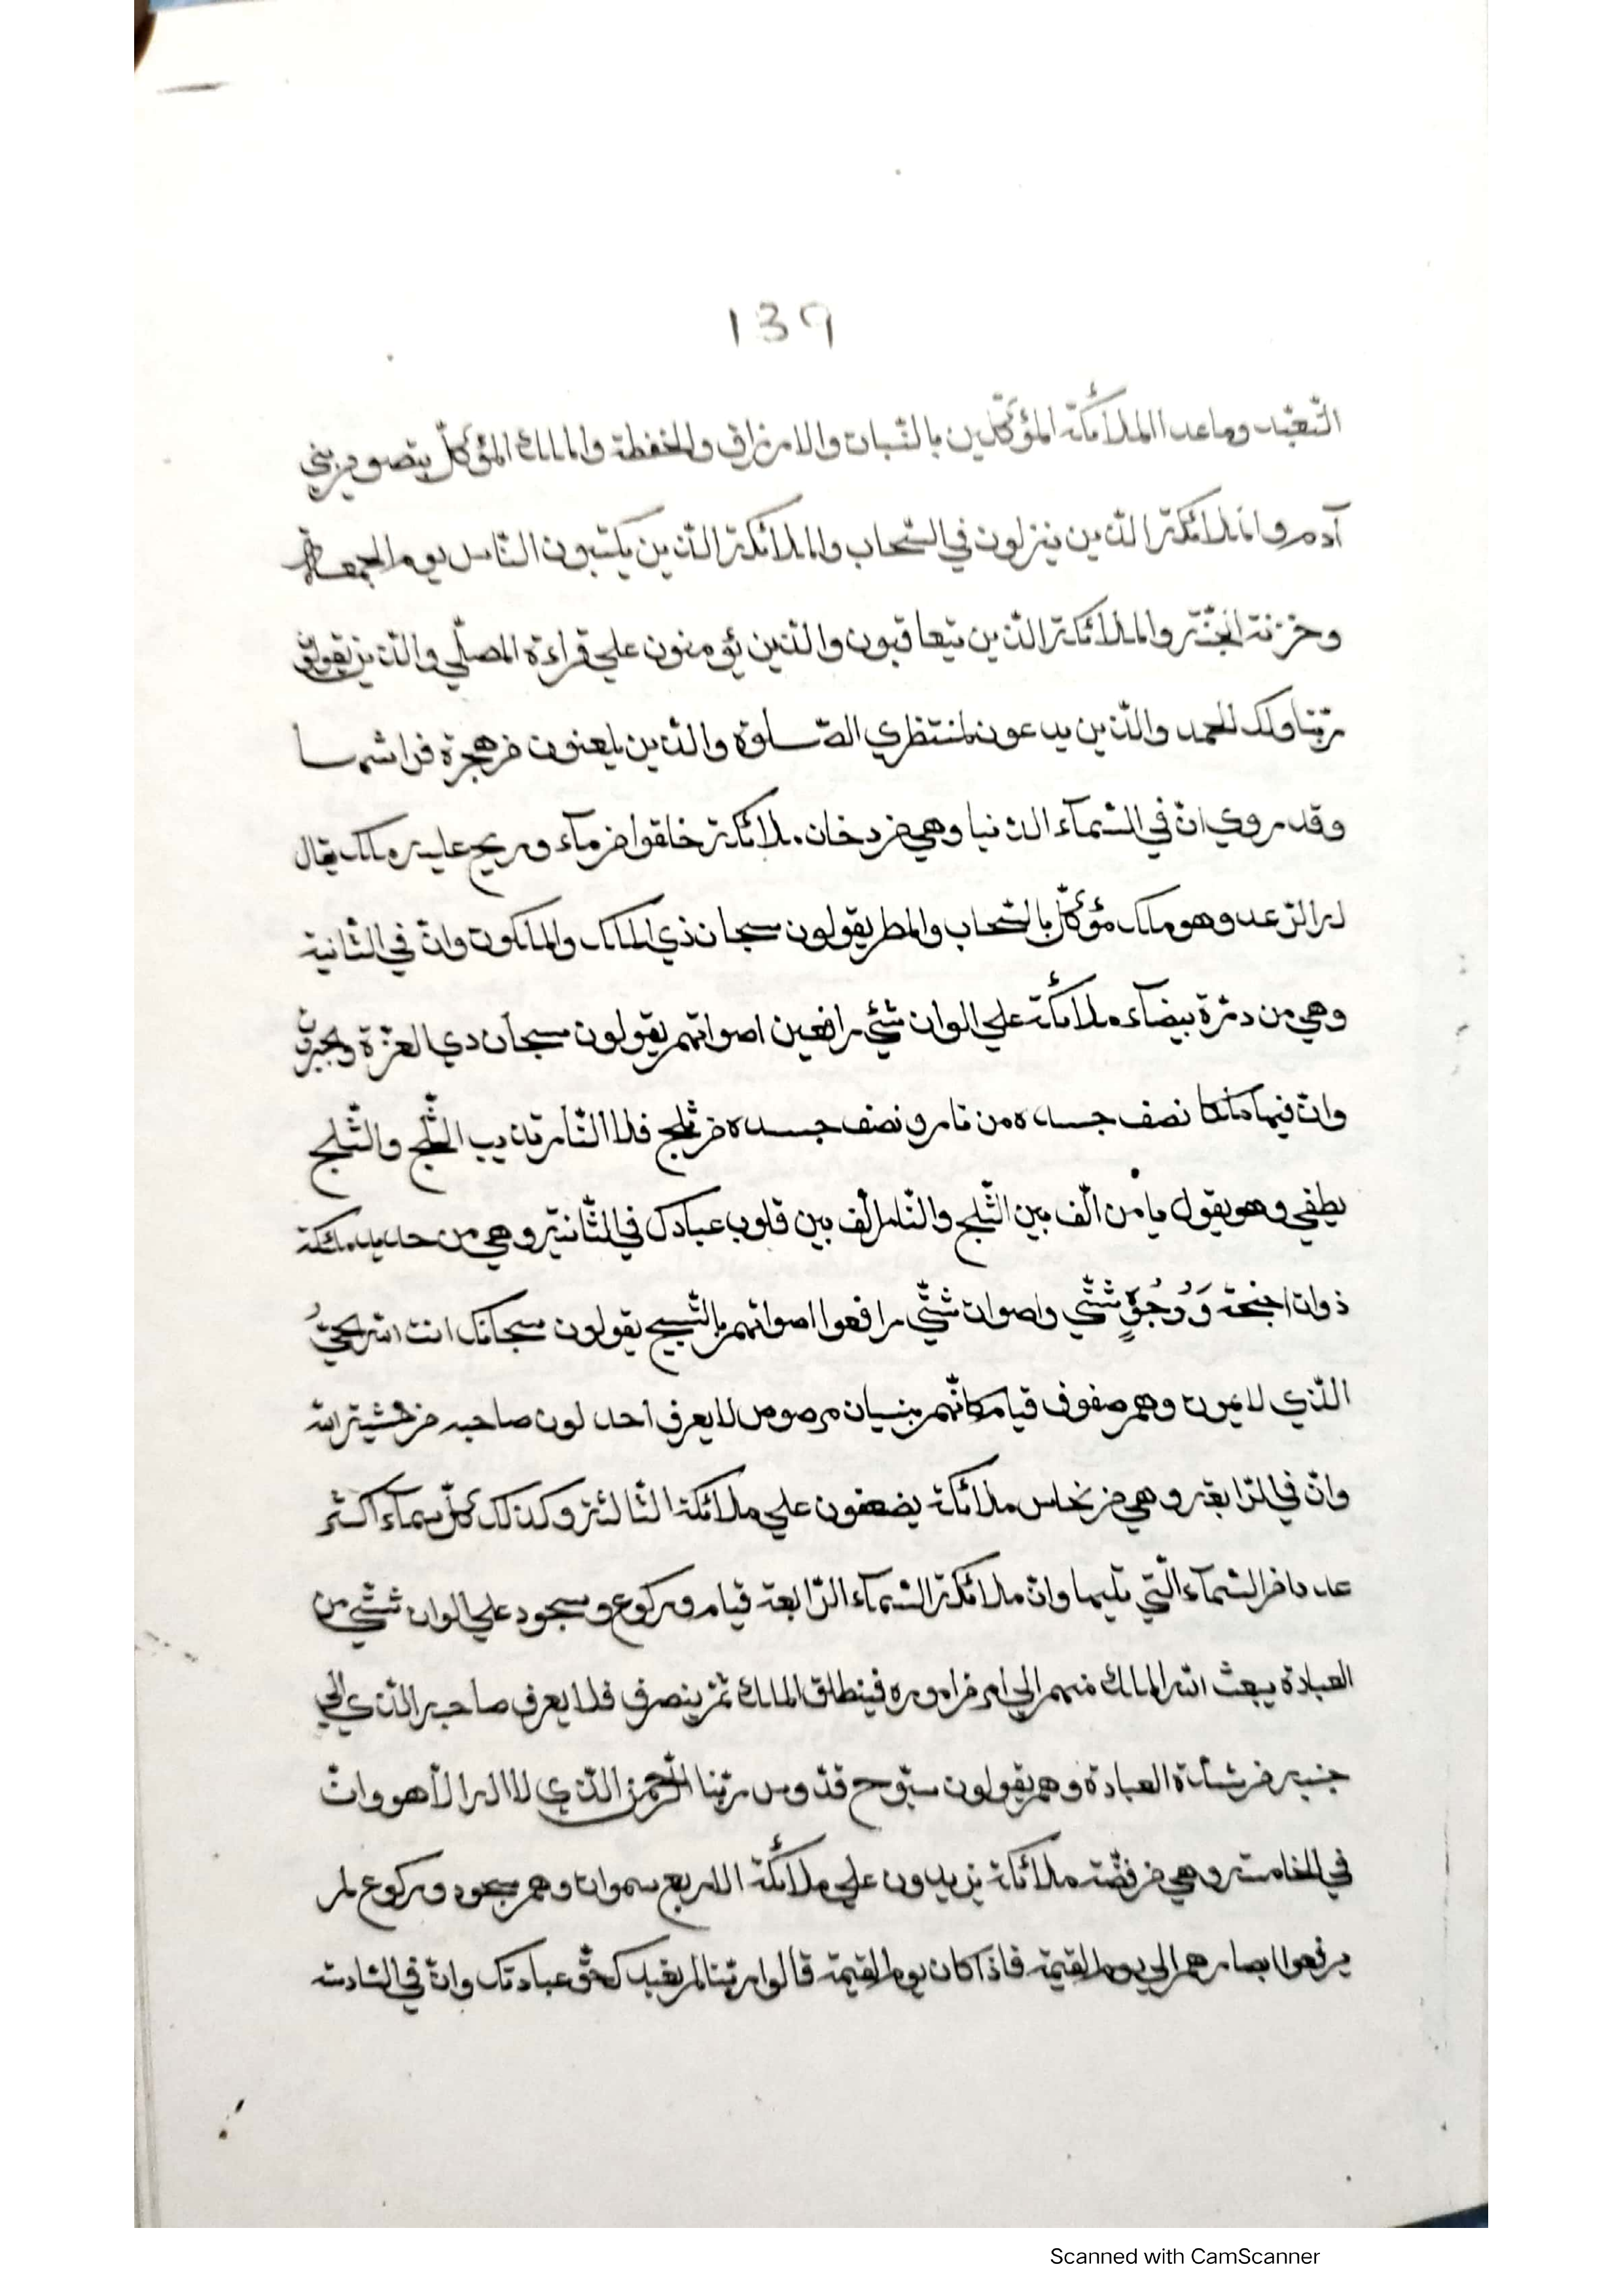 139
التّعبّد وما عدا الملائكة المؤكّلين بالنّبات والارزاق والحفظة والملك المؤكّل بتصوير بني
آدم والملائكة الذين ينزلون في السّحاب والملائكة الذين يكتبون النّاس يوم الجمعة
وخزنة الجنّة والملائكة الذين يتعاقبون والذين يؤمنون علي قراءة المصلّي والذين يقولون
ربّنا ولك الحمد والذين يدعون لمنتظري الصّلوة والذين يلعنون من هجرة فراشها
وقد روي انّ في السّمآء الدّنيا وهي من دخان ملائكة خلقوا من مآء وريح عليهم ملك يقال
له الرّعد وهو ملك مؤكّل بالسّحاب والمطر يقولون سبحان ذي الملك والملكوت وانّ في الثّانية
وهي من درّة بيضآء ملائكة علي الوان شتّي رافعين اصواتهم يقولون سبحان دي العزّة والجبروت
وانّ فيها ملكا نصف جسده من نار ونصف جسده من ثلج فلا النّار تذيب الثّلج والثّلج
يطفي وهو يقول يا من الّف بين الثّلج والنّار الّف بين قلوب عبادك في الثّانية وهي من حديد ملئكة
ذوات اجنحة وَوُجُوٍه شتّي واصوات شتّي رافعوا اصواتهم بالتّسبيح يقولون سبحانك انت الله الحيُّ
الذّي لا يموت وهم صفوف قيام كانّهم بنسيان مرصوص لا يعرف احد لون صاحبه من خشية الله
وانّ في الرّابعة وهي من نحاس ملائكة يضعفون علي ملائكة الثّالثة وكذلك كلّ سمآء اكثر
عددا من السّمآء الّتي تليها وانّ ملائكة السّمآء الرّابعة قيام وركوع وسجود علي الوان شتّي من
العبادة يبعث الله الملك منهم الي امر من اموره فينطلق الملك ثمّ ينصرف فلا يعرف صاحبه الذّي الي
جنبه من شدّة العبادة وهم يقولون سبّوح قدّوس ربّنا الرّحمن الذّي لا اله الاّ هو وانّ
في الخامسة وهي من فضّة ملائكة يزيدون علي ملائكة الاربع سموات وهم سجود وركوع لم
يرفعوا ابصارهم الي يوم القيمة فاذا كان يوم القيمة قالوا ربّنا لم نعبدك حقّ عبادتك وانّ في السّادسة
Scanned with CamScanner